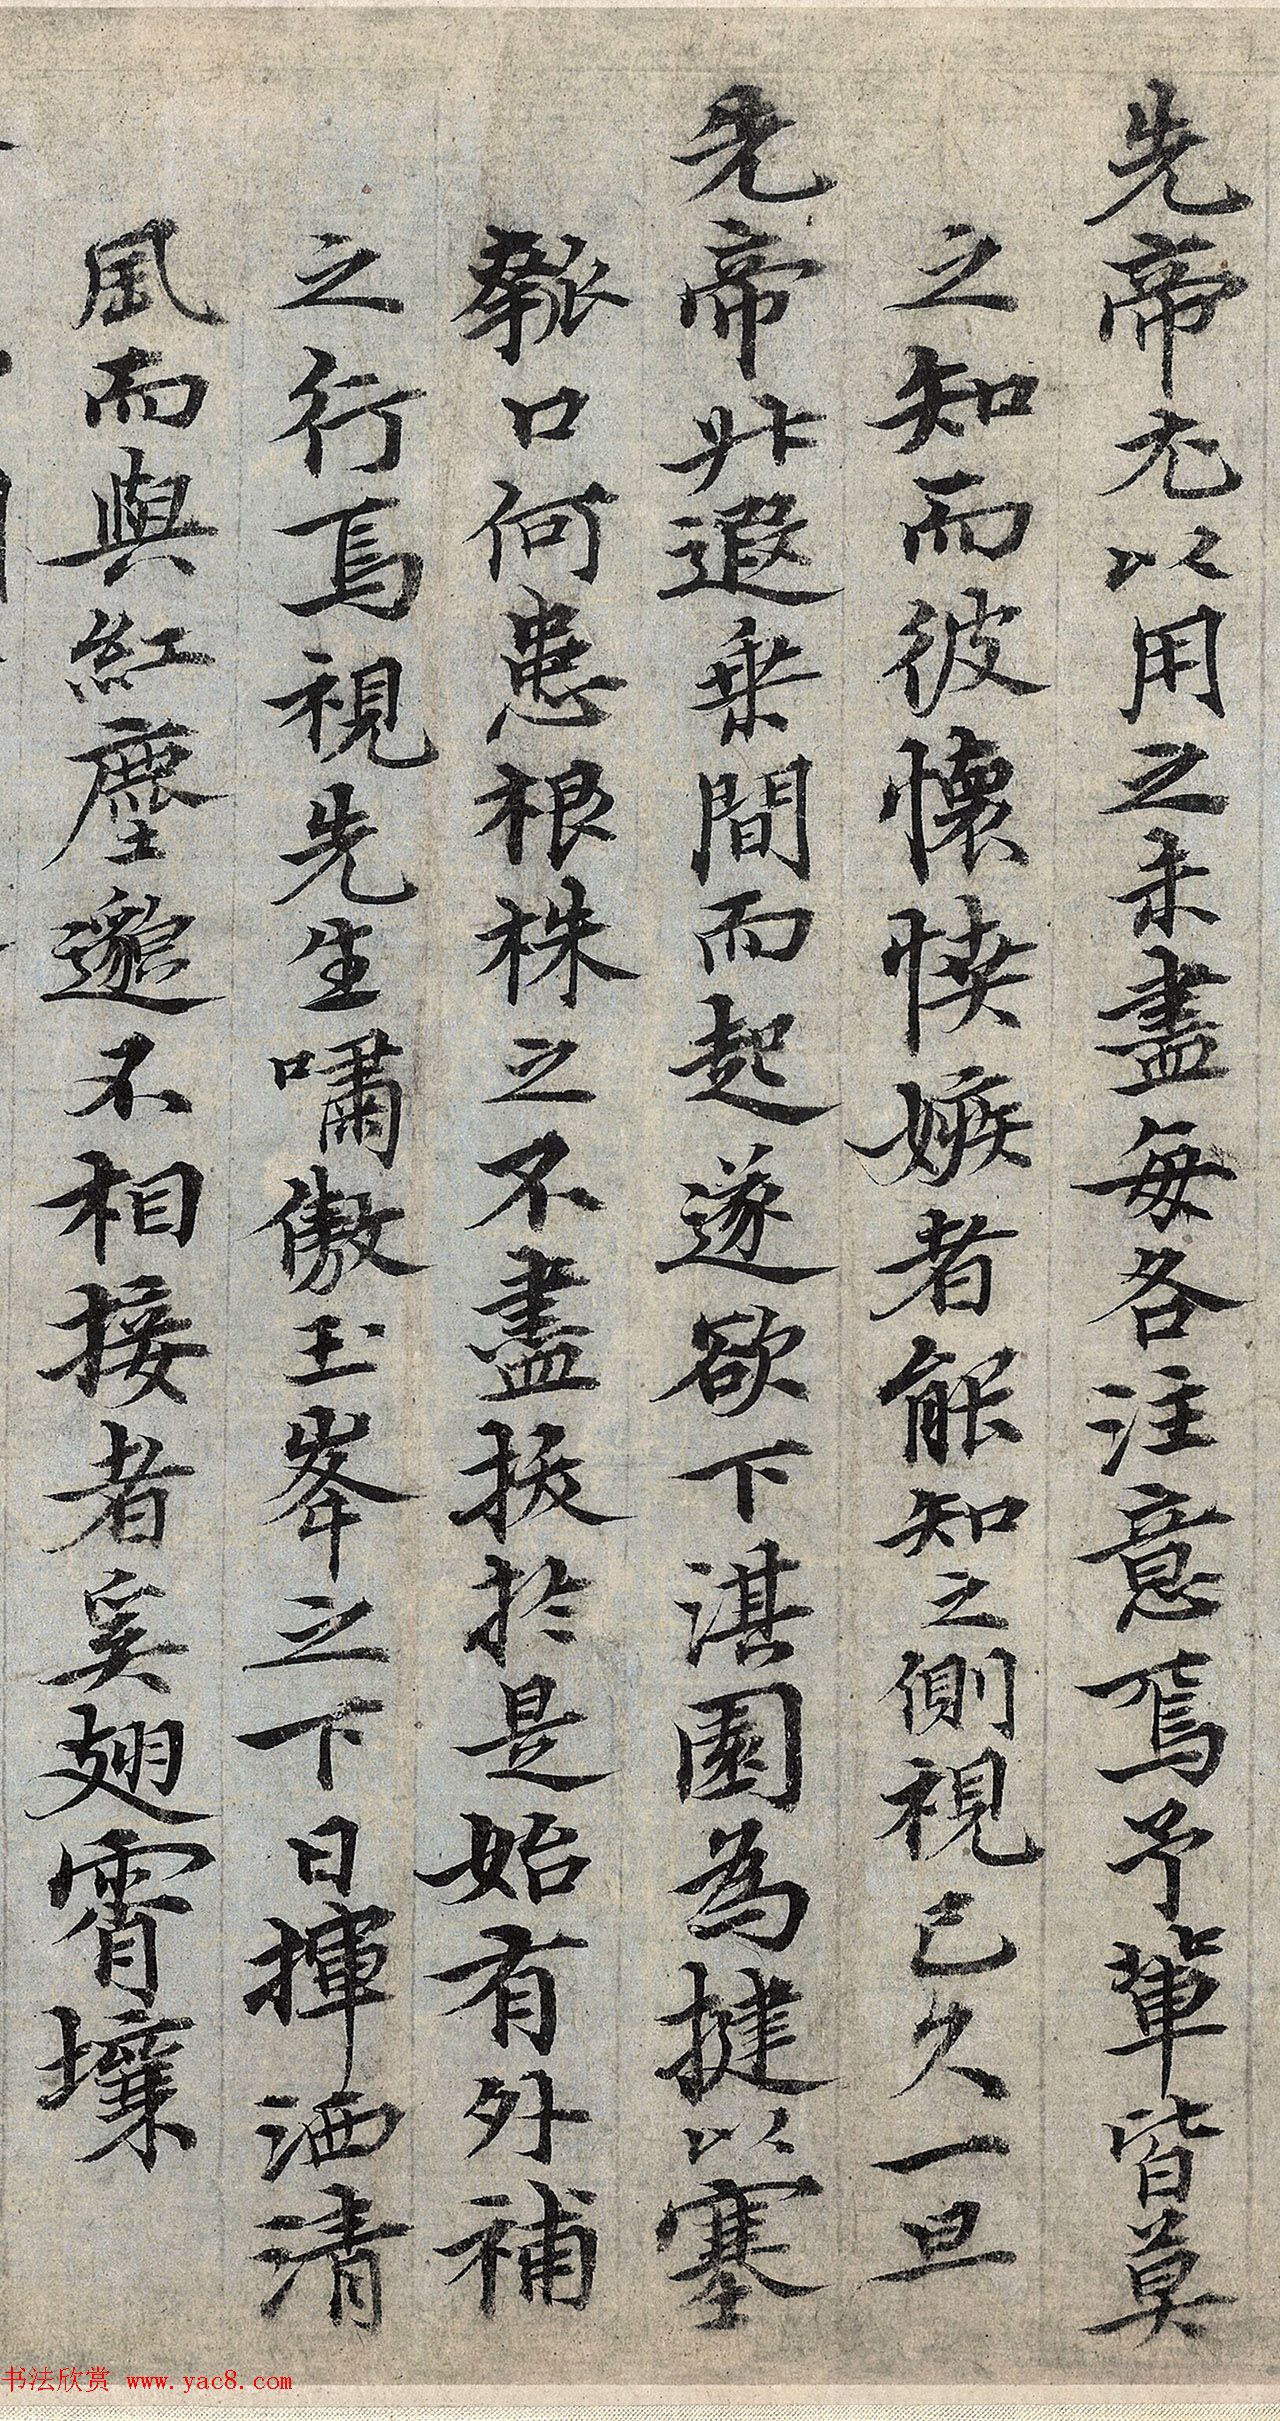 先帝尤以用之未盡每各注意焉予輩皆莫
之知而彼懷愤嫉者能知之側視已久一旦
先帝升遐乗間而起遂欲下淇園為揵以塞
衆口何患根株之不盡拔扵是始有外補
之行焉視先生嘯傲玉峯之下日揮洒清
風而與紅塵邈不相接者奚翅霄壤
书法欣赏 www.yac8.com